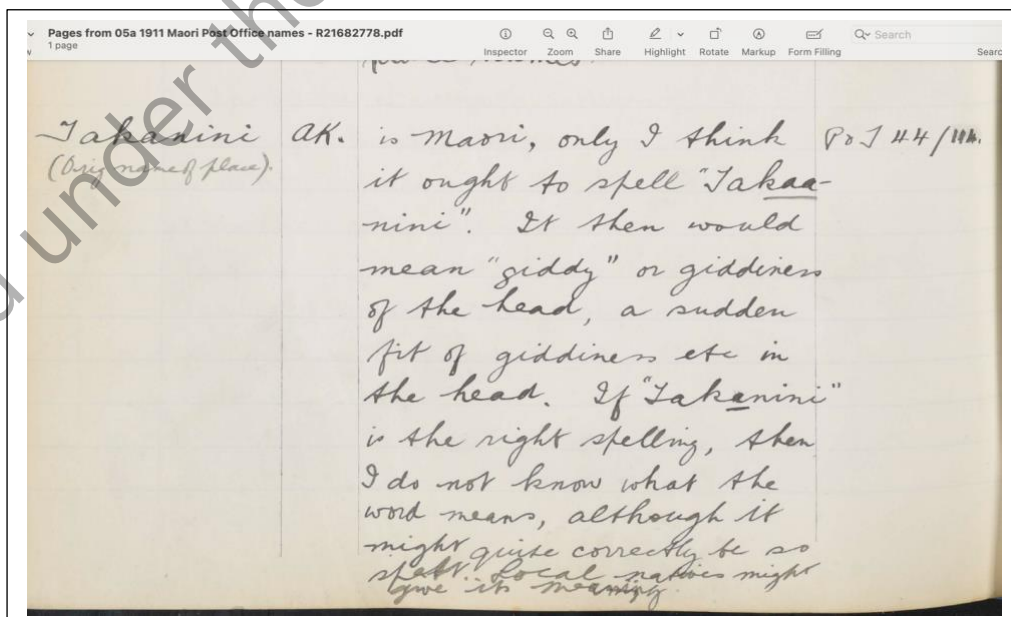 Pages from 05a 1911 Maori Post Office names - R21682778.pdf
1 page
Inspector Zoom Share Highlight Rotate Markup Form Filling
Search
under the
Takanini AK. is Maori, only I think
(Orig name of place). it ought to spell "Takaa-
nini". It then would
mean "giddy" or giddiness
of the head, a sudden
fit of giddiness etc in
the head. If "Takanini"
is the right spelling, then
I do not know what the
word means, although it
might quite correctly be so
spelt. Local natives might
give its meaning.